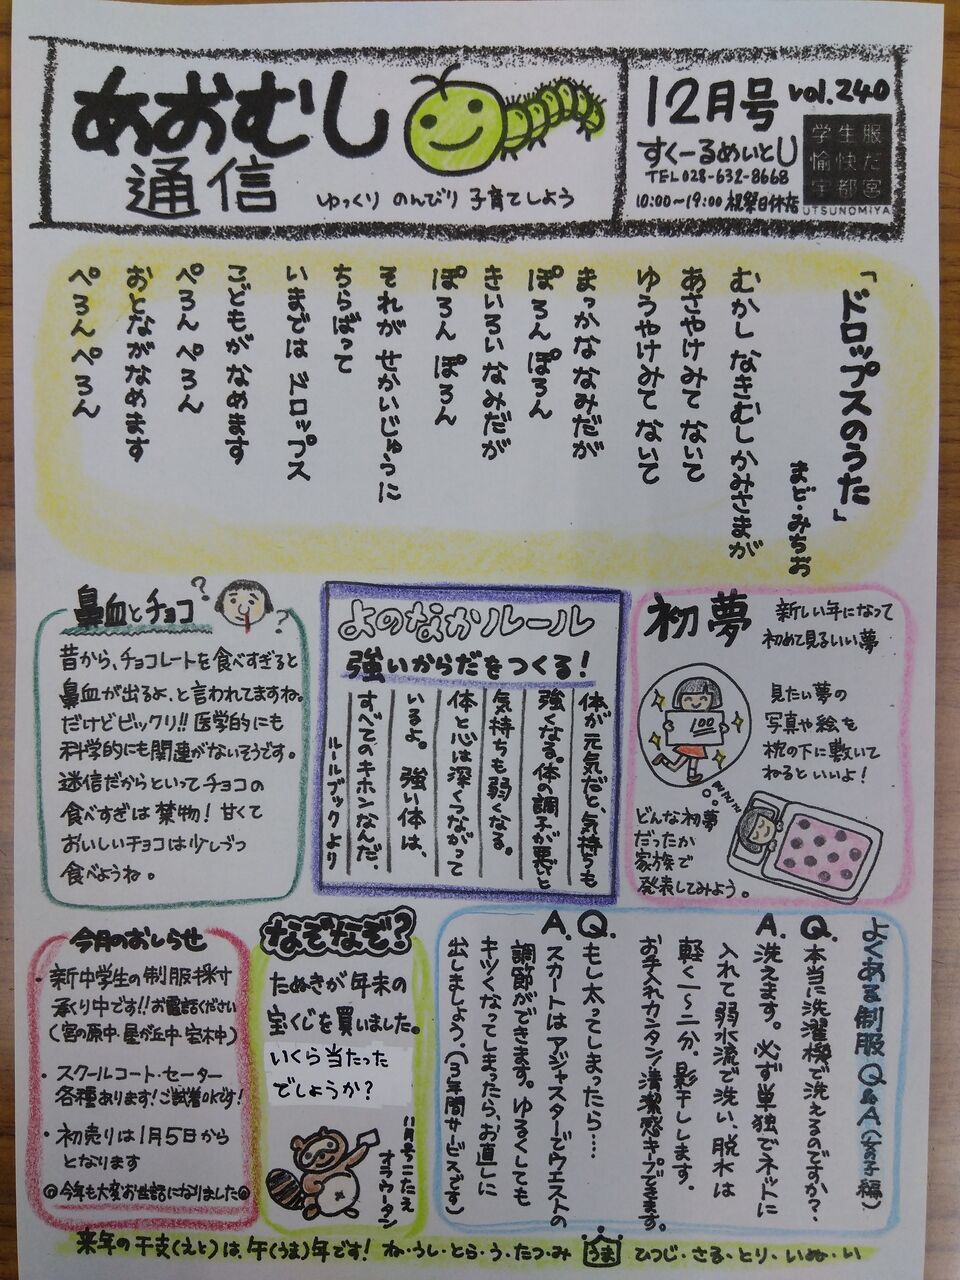 あおむし
通信
ゆっくり のんびり 子育てしよう
12月号 vol.240
すくーるめいとU
TEL 028-632-8668
10:00～19:00 祝祭日休店
学生服
愉快だ
宇都宮
UTSUNOMIYA
「ドロップスのうた」
まど・みちお
むかし なきむしかみさまが
あさやけみて ないて
ゆうやけみて ないて
まっかななみだが
ぽろん ぽろん
きいろいなみだが
ぽろん ぽろん
それが せかいじゅうに
ちらばって
いまでは ドロップス
こどもが なめます
ぺろん ぺろん
おとながなめます
ぺろんぺろん
鼻血とチョコ
昔から、チョコレートを食べすぎると
鼻血が出るよ、と言われてますね。
だけどビックリ!! 医学的にも
科学的にも関連がないそうです。
迷信だからといってチョコの
食べすぎは禁物! 甘くて
おいしいチョコは少しづつ
食べようね。
よのなかルール
強いからだをつくる!
体が元気だと、気持ちも
強くなる。体の調子が悪いと
気持ちも弱くなる。
体と心は深くつながって
いるよ。強い体は、
すべてのキホンなんだ。
ルールブックより
初夢
新しい年になって
初めて見るいい夢
100
見たい夢の
写真や絵を
枕の下に敷いて
ねるといいよ!
どんな初夢
だったか
家族で
発表してみよう。
今月のおしらせ
・新中学生の制服採寸
承り中です!! お電話ください
(宮の原中・星が丘中・宝木中)
・スクールコート・セーター
各種あります! ご試着OKです!
・初売りは1月5日から
となります
◎今年も大変お世話になりました◎
なぞなぞ?
たぬきが年末の
宝くじを買いました。
いくら当たった
でしょうか?
11月号こたえ
オラウータン
よくある制服Q&A(女子編)
Q. 本当に洗濯機で洗えるのですか?
A. 洗えます。必ず単独でネットに
入れて弱水流で洗い、脱水は
軽く一～二分、影干しします。
お手入れカンタン! 清潔感キープできます。
Q. もし太ってしまったら…
A. スカートはアジャスターでウエストの
調節ができます。ゆるくしても
キツくなってしまったら、お直しに
出しましょう。(3年間サービスです)
来年の干支(えと)は、午(うま)年です! ね・うし・とら・う・たつ・み うま ひつじ・さる・とり・いぬ・い